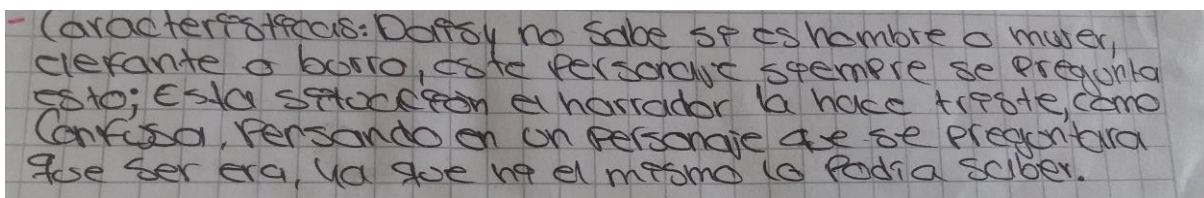 - Características: Daisy no sabe si es hombre o mujer,
elefante o burro, este personaje siempre se pregunta
esto; Esta situación el narrador la hace triste, como
Confusa, Pensando en un personaje que se preguntara
que ser era, ya que ni el mismo lo Podia saber.